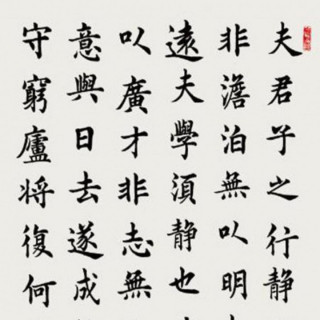 夫君子之行静
非澹泊無以明
遠夫學須静也
以廣才非志無
意與日去遂成
守窮廬将復何